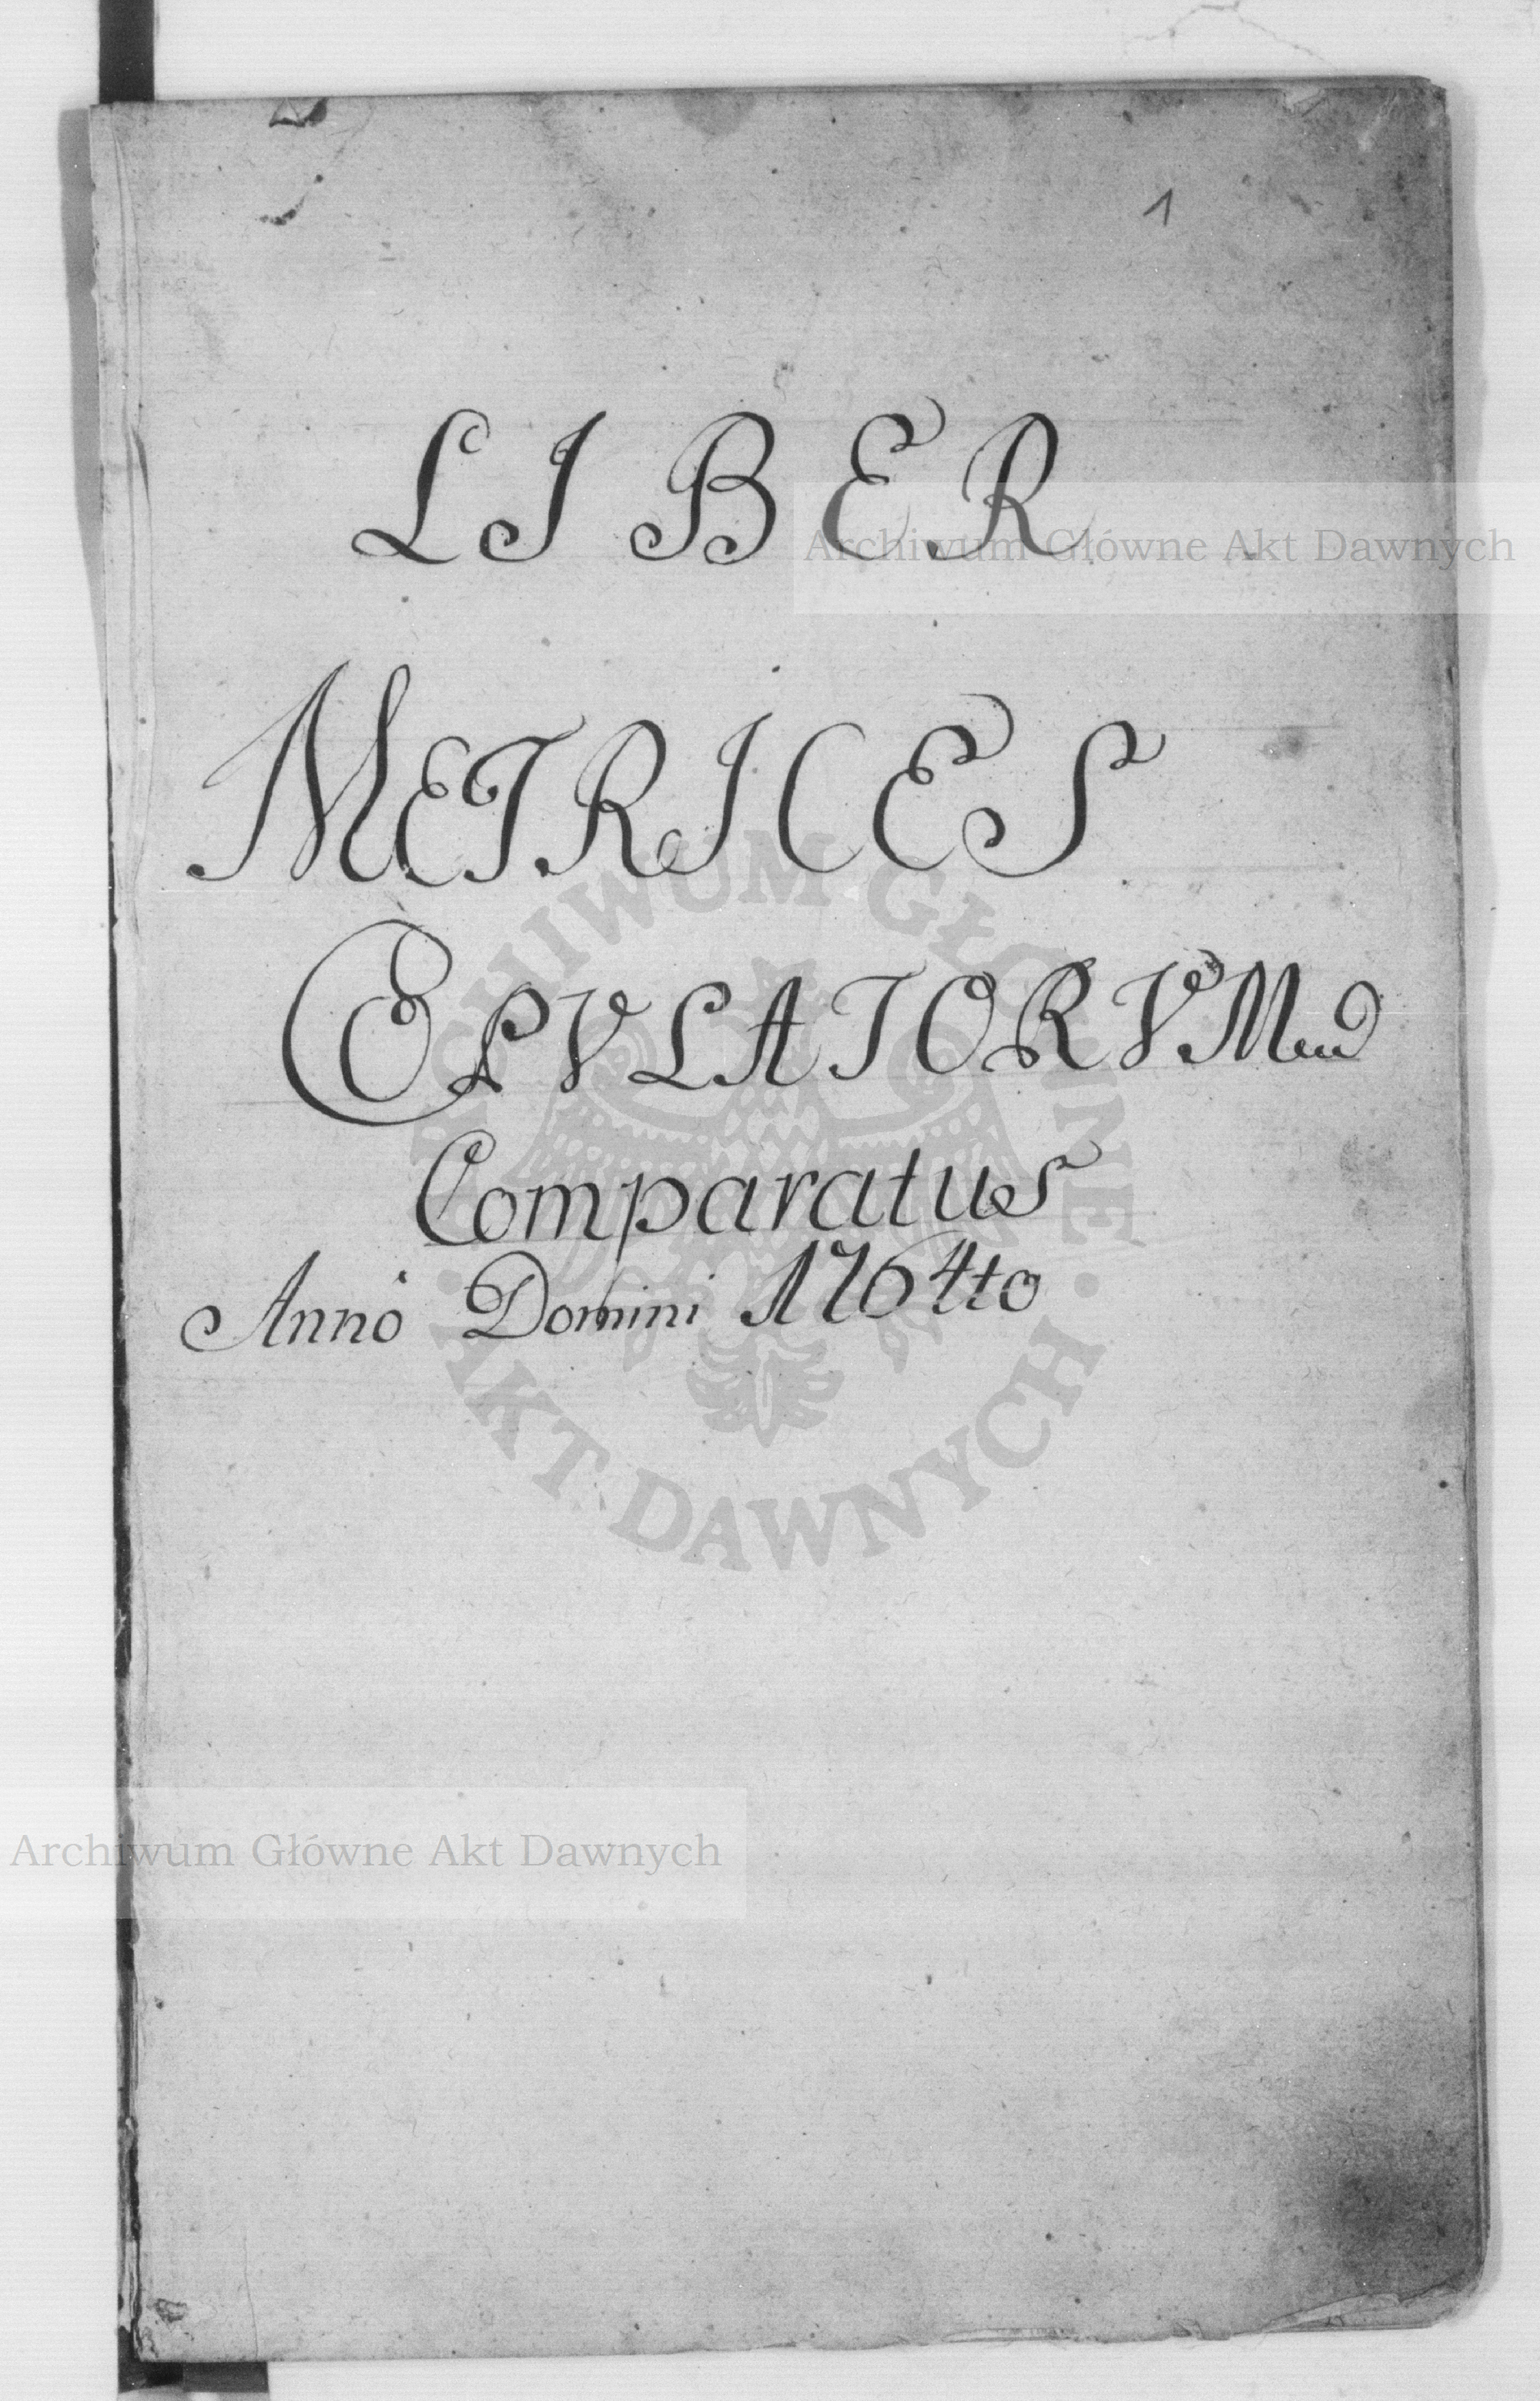 1
LIBER
Archiwum Główne Akt Dawnych
METRICES
COPVLATORVM
Comparatus
Annò Domini 1764to
ARCHIWUM GŁÓWNE
· AKT DAWNYCH ·
Archiwum Główne Akt Dawnych